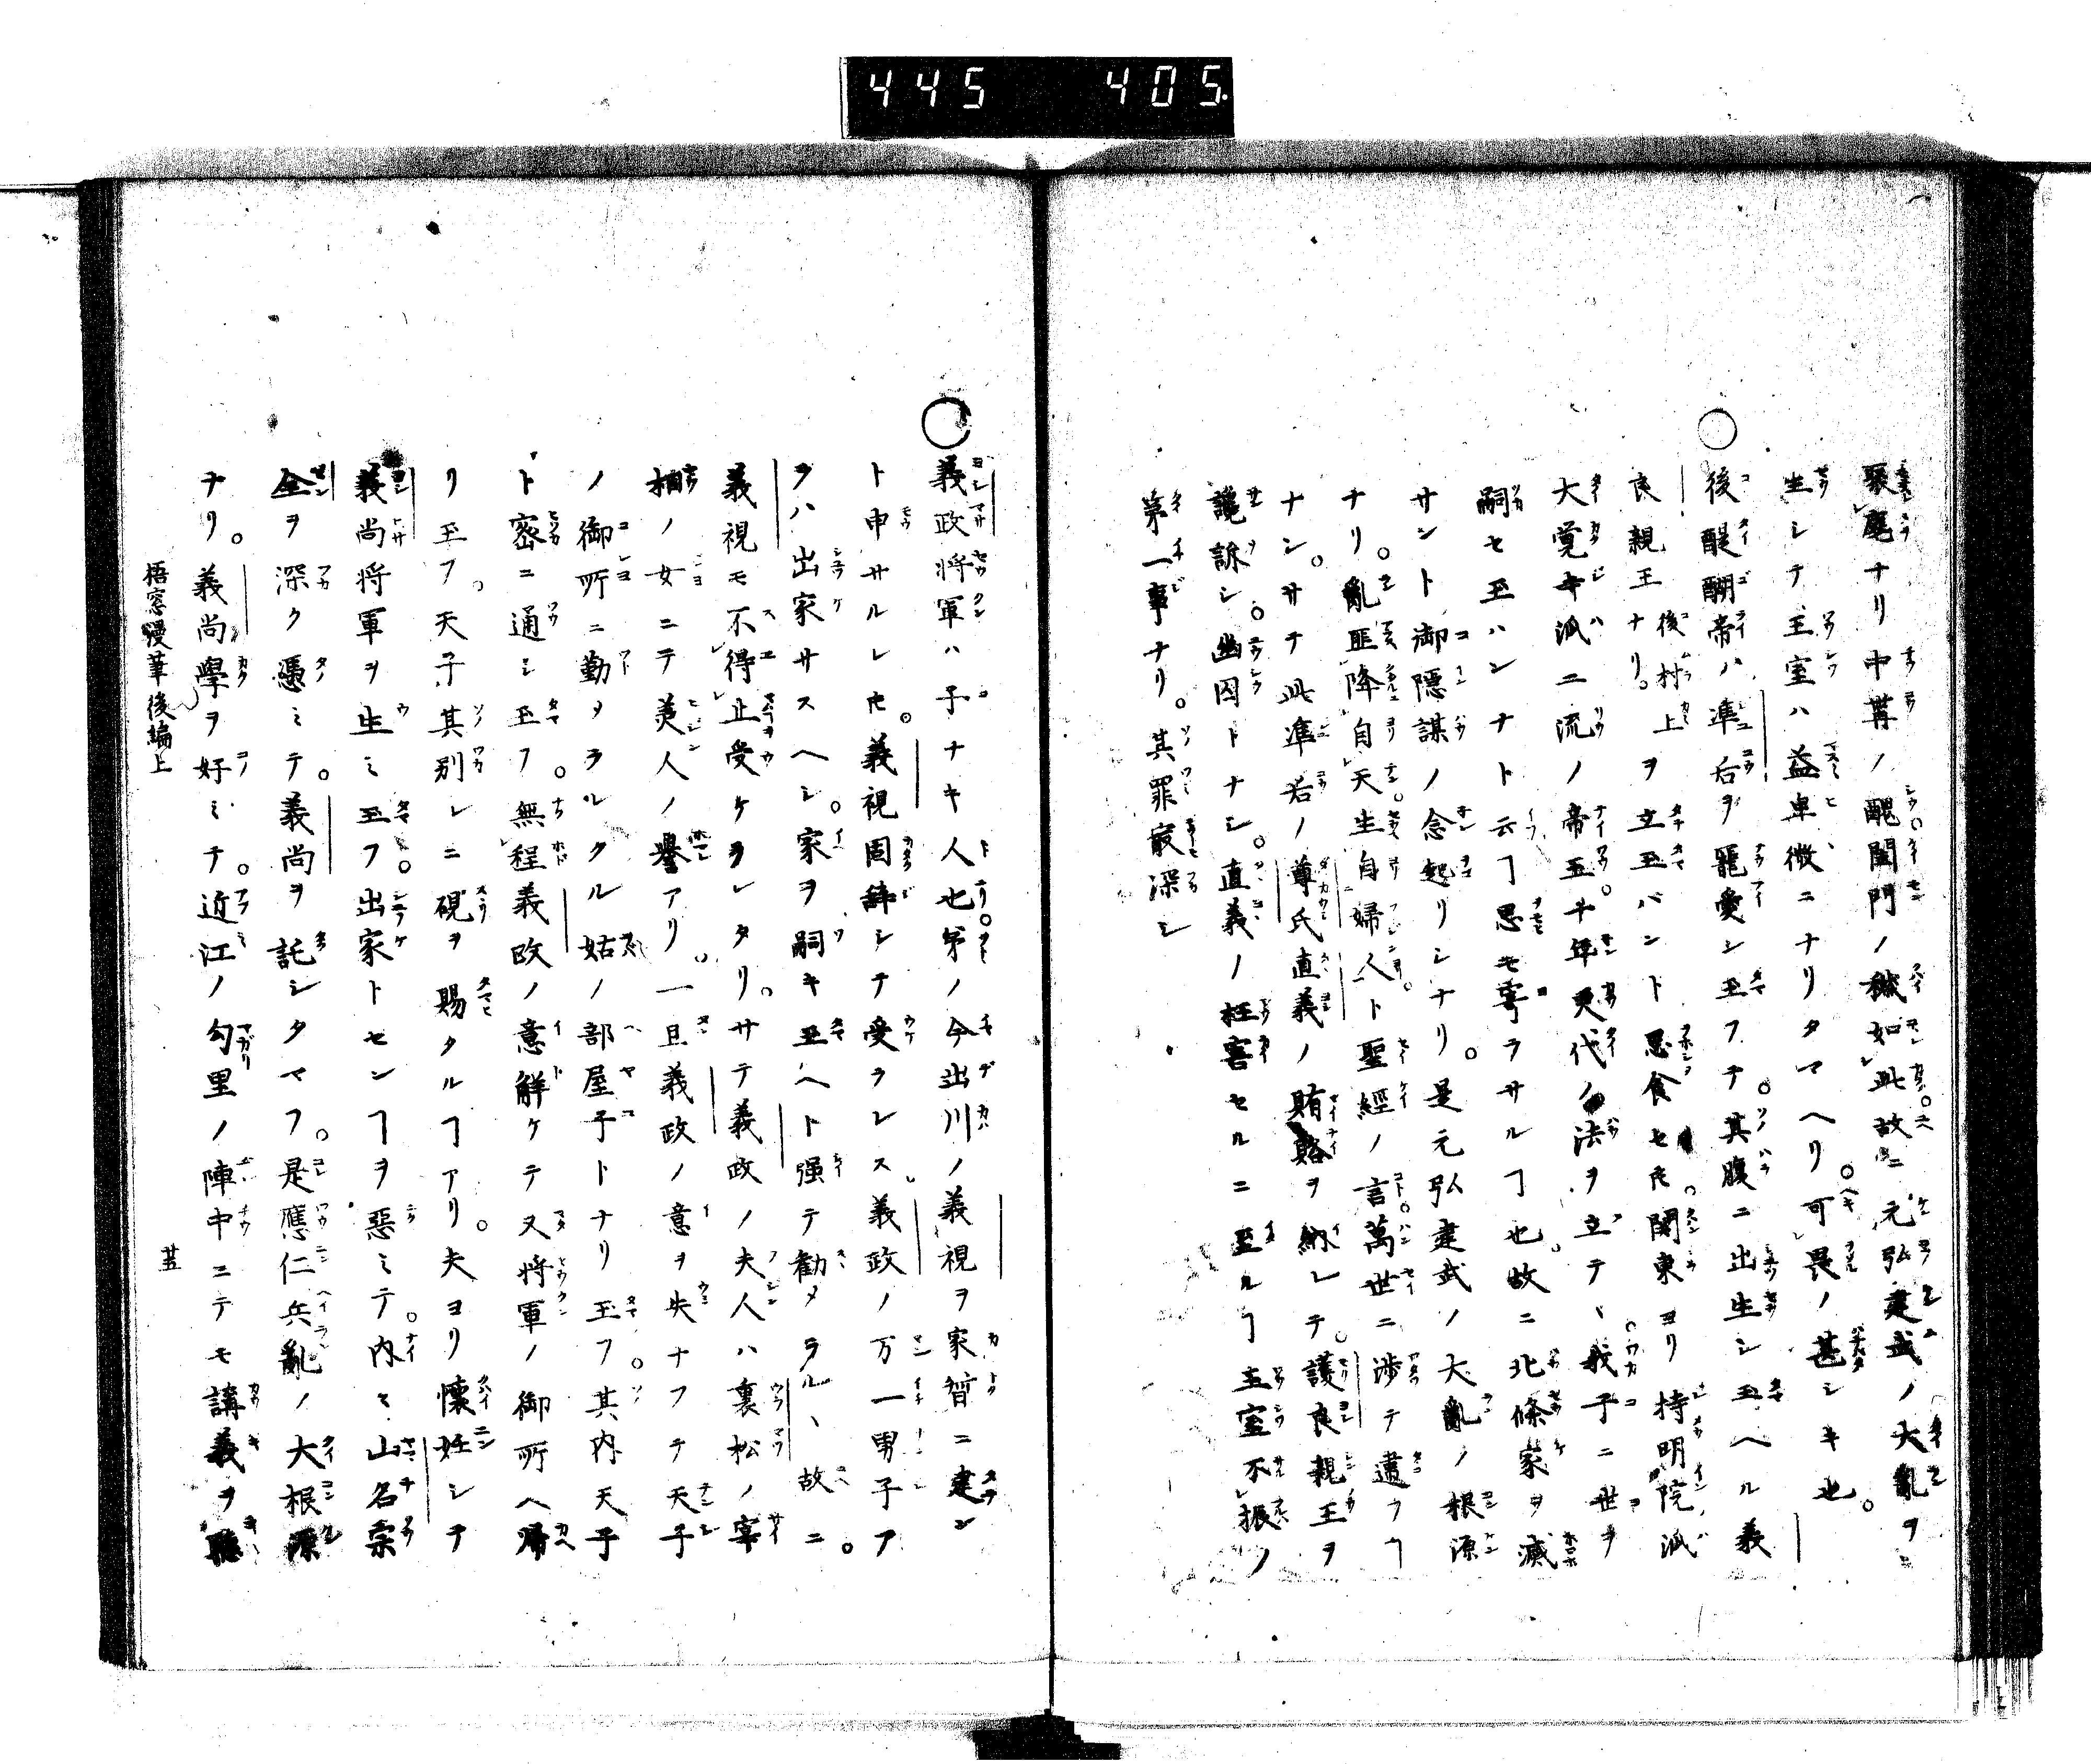 445 405
聚麀ナリ中冓ノ醜閨門ノ穢如此故ニ元弘建武ノ大亂ヲ
生シテ王室ハ益卑微ニナリタマヘリ。可畏ノ甚シキ也。
○後醍醐帝ハ準后ヲ寵愛シ玉フテ。其腹ニ出生シ玉ヘル義
良親王ナリ。後村上ヲ立玉バント思食セ𪜈。関東ヨリ持明院流
大覚寺流ニ流ノ帝王。十年更代ノ法ヲ立テヽ。我子ニ世ヲ
嗣セ玉ハンナト云ヿ思モ寄ラサルヿ也。故ニ北條家ヲ滅
サント御隠謀ノ念起リシナリ。是元弘建武ノ大亂ノ根源
ナリ。亂匪降自天。生自婦人ト聖經ノ言。萬世ニ渉テ違フヿ
ナシ。サテ此準后ノ尊氏直義ノ賄賂ヲ納レテ。護良親王ヲ
讒訴シ。幽囚トナシ。直義ノ枉害セルニ至ルヿ王室不振ノ
第一事ナリ。其罪最深シ
○義政将軍ハ子ナキ人也。弟ノ今出川ノ義視ヲ家督ニ建ン
ト申サルレ𪜈。義視固辞シテ受ラレス。義政ノ万一男子ア
ラハ出家サスヘシ。家ヲ嗣キ玉ヘト强テ勸メラルヽ故ニ。
義視モ不得止受ケラレタリ。サテ義政ノ夫人ハ裏松ノ宰
相ノ女ニテ美人ノ譽アリ。一旦義政ノ意ヲ失ナフテ天子
ノ御所ニ勤メラルクル姑ノ部屋子トナリ玉フ。其内天子
ト密ニ通シ玉フ。無程義政ノ意解ケテ又将軍ノ御所ヘ歸
リ玉フ。天子其別レニ硯ヲ賜タルヿアリ。夫ヨリ懷妊シテ
義尚将軍ヲ生ミ玉フ。出家トセンヿヲ惡ミテ。内々山名宗
全ヲ深ク憑ミテ。義尚ヲ託シタマフ。是應仁兵亂ノ大根源
ナリ。義尚學ヲ好ミテ。近江ノ勾里ノ陣中ニテモ講義ヲ聽
梧窓漫筆後編上